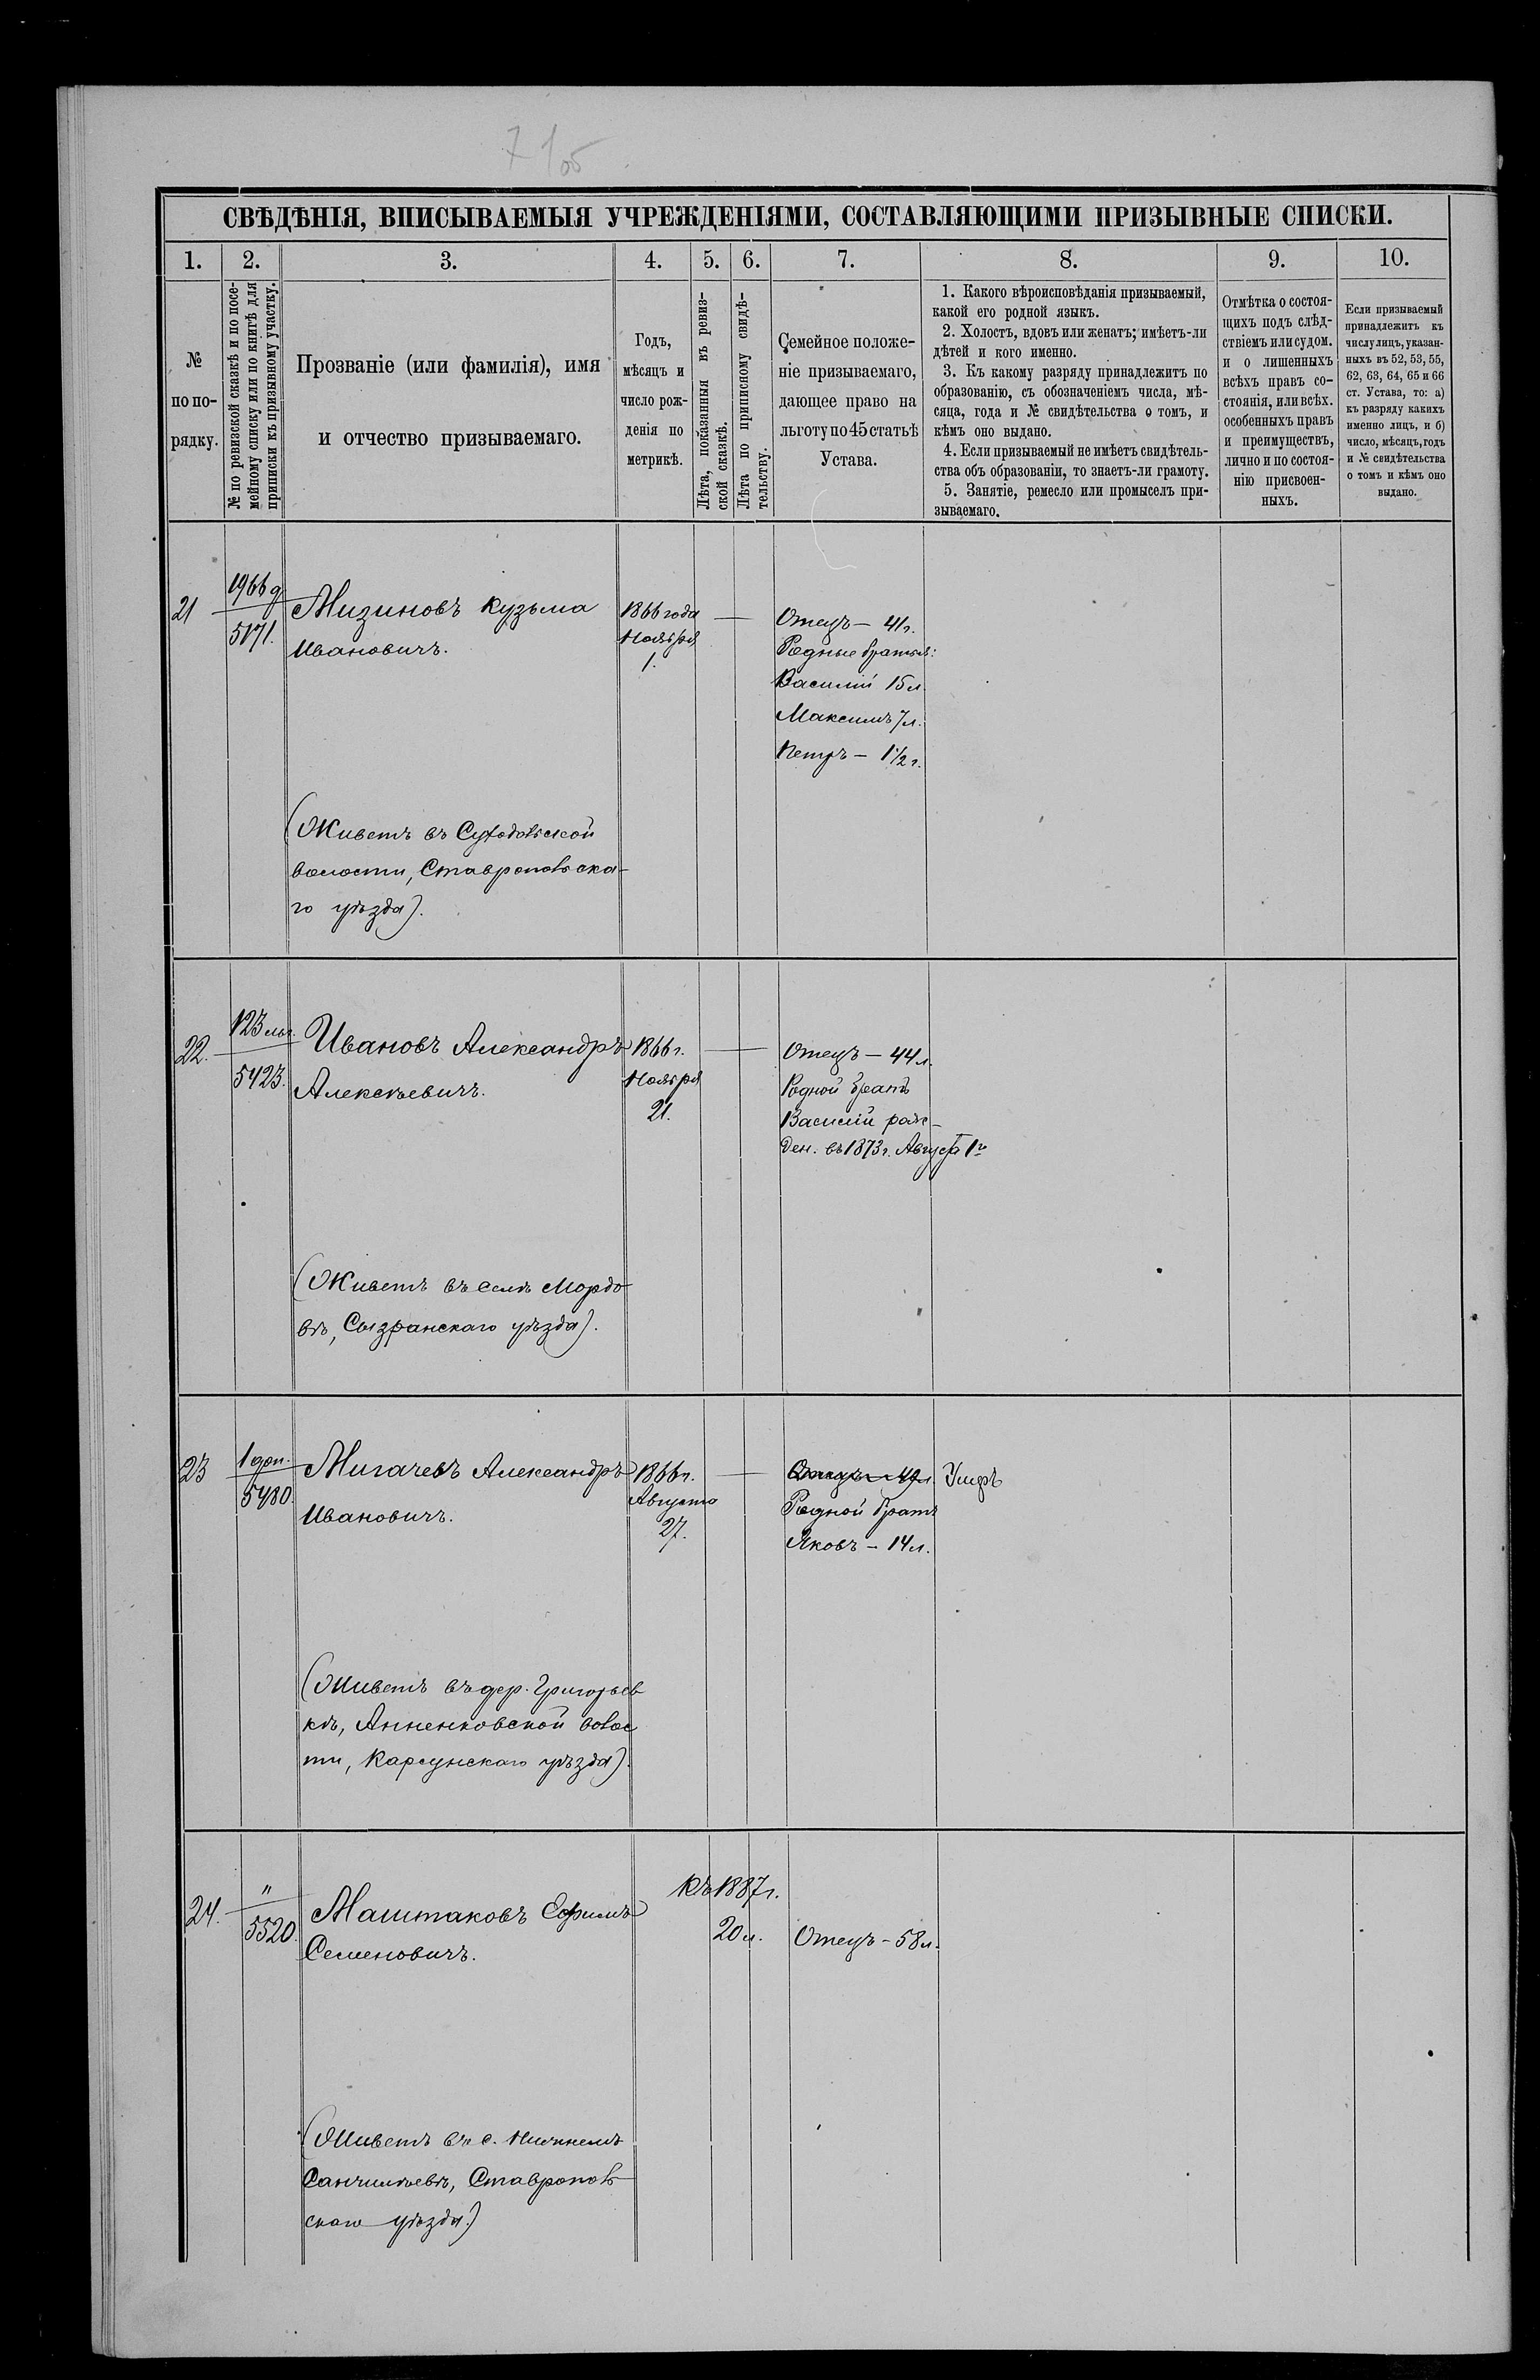 7 105
СВѢДѢНІЯ, ВПИСЫВАЕМЫЯ УЧРЕЖДЕНІЯМИ, СОСТАВЛЯЮЩИМИ ПРИЗЫВНЫЕ СПИСКИ.
1. 2. 3. 4. 5. 6. 7. 8. 9. 10.
№
по по-
рядку.
№ по ревизской сказкѣ и по посе-
мейному списку или по книгѣ для
приписки къ призывному участку.
Прозваніе (или фамилія), имя
и отчество призываемаго.
Годъ,
мѣсяцъ и
число рож-
денія по
метрикѣ.
Лѣта, показанныя въ ревиз-
ской сказкѣ.
Лѣта по приписному свидѣ-
тельству.
Семейное положе-
ніе призываемаго,
дающее право на
льготу по 45 статьѣ
Устава.
1. Какого вѣроисповѣданія призываемый,
какой его родной языкъ.
2. Холостъ, вдовъ или женатъ; имѣетъ-ли
дѣтей и кого именно.
3. Къ какому разряду принадлежитъ по
образованію, съ обозначеніемъ числа, мѣ-
сяца, года и № свидѣтельства о томъ, и
кѣмъ оно выдано.
4. Если призываемый не имѣетъ свидѣтель-
ства объ образованіи, то знаетъ-ли грамоту.
5. Занятіе, ремесло или промыселъ при-
зываемаго.
Отмѣтка о состоя-
щихъ подъ слѣд-
ствіемъ или судом.
и о лишенныхъ
всѣхъ правъ со-
стоянія, или всѣх.
особенныхъ правъ
и преимуществъ,
лично и по состоя-
нію присвоен-
ныхъ.
Если призываемый
принадлежитъ къ
числу лицъ, указан-
ныхъ въ 52, 53, 55,
62, 63, 64, 65 и 66
ст. Устава, то: а)
къ разряду какихъ
именно лицъ, и б)
число, мѣсяцъ, годъ
и № свидѣтельства
о томъ и кѣмъ оно
выдано.
21
1966 д
5171.
Мизиновъ Кузьма
Ивановичъ.
1866 года
Ноября
1.
Отецъ — 41 г.
Родные братья:
Василій 15 л.
Максимъ 7 л.
Петръ — 1 1/2 г.
(Живетъ въ Суходольской
волости, Ставропольска-
го уѣзда).
22.
123 льг.
5423.
Ивановъ Александръ
Алексѣевичъ.
1866 г.
Ноября
21.
Отецъ — 44 л.
Родной братъ
Василій рож-
ден. въ 1873 г. Августа 1го
(Живетъ въ селѣ Мордо
вѣ, Сызранскаго уѣзда).
23
1 доп.
5480.
Мигачевъ Александръ
Ивановичъ.
1866 г.
Августа
27.
Отецъ — 49 л. Умеръ
Родной братъ
Яковъ — 14 л.
(Живетъ въ дер. Григорьев
кѣ, Анненковской волос
ти, Карсунскаго уѣзда).
24.
"
5520.
Маштаковъ Ефимъ
Семеновичъ.
Къ 1887 г.
20 л.
Отецъ — 58 л.
(Живетъ въ с. Нижнемъ
Санчилѣевѣ, Ставрополь
скаго уѣзда.)